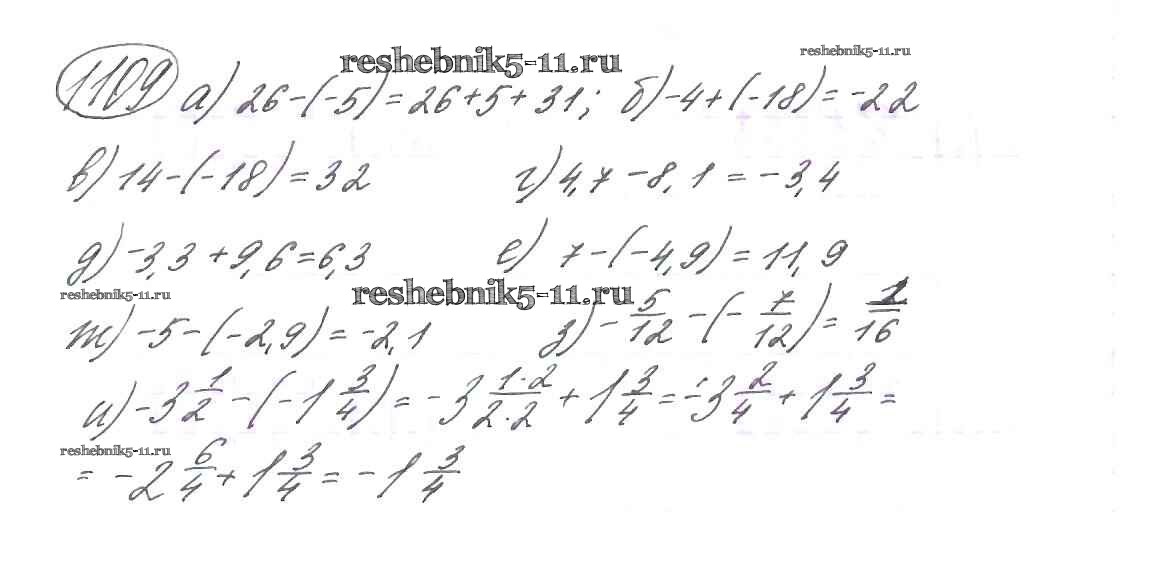 reshebnik5-11.ru reshebnik5-11.ru
1109 а) 26-(-5)=26+5+31; б) -4+(-18)=-22
в) 14-(-18)=32 г) 4,7-8,1=-3,4
д) -3,3+9,6=6,3 е) 7-(-4,9)=11,9
reshebnik5-11.ru reshebnik5-11.ru
ж) -5-(-2,9)=-2,1 з) -5/12-(-7/12)=1/16
и) -3 1/2-(-1 3/4)=-3 1·2/2·2+1 3/4=-3 2/4+1 3/4=
reshebnik5-11.ru
=-2 6/4+1 3/4=-1 3/4